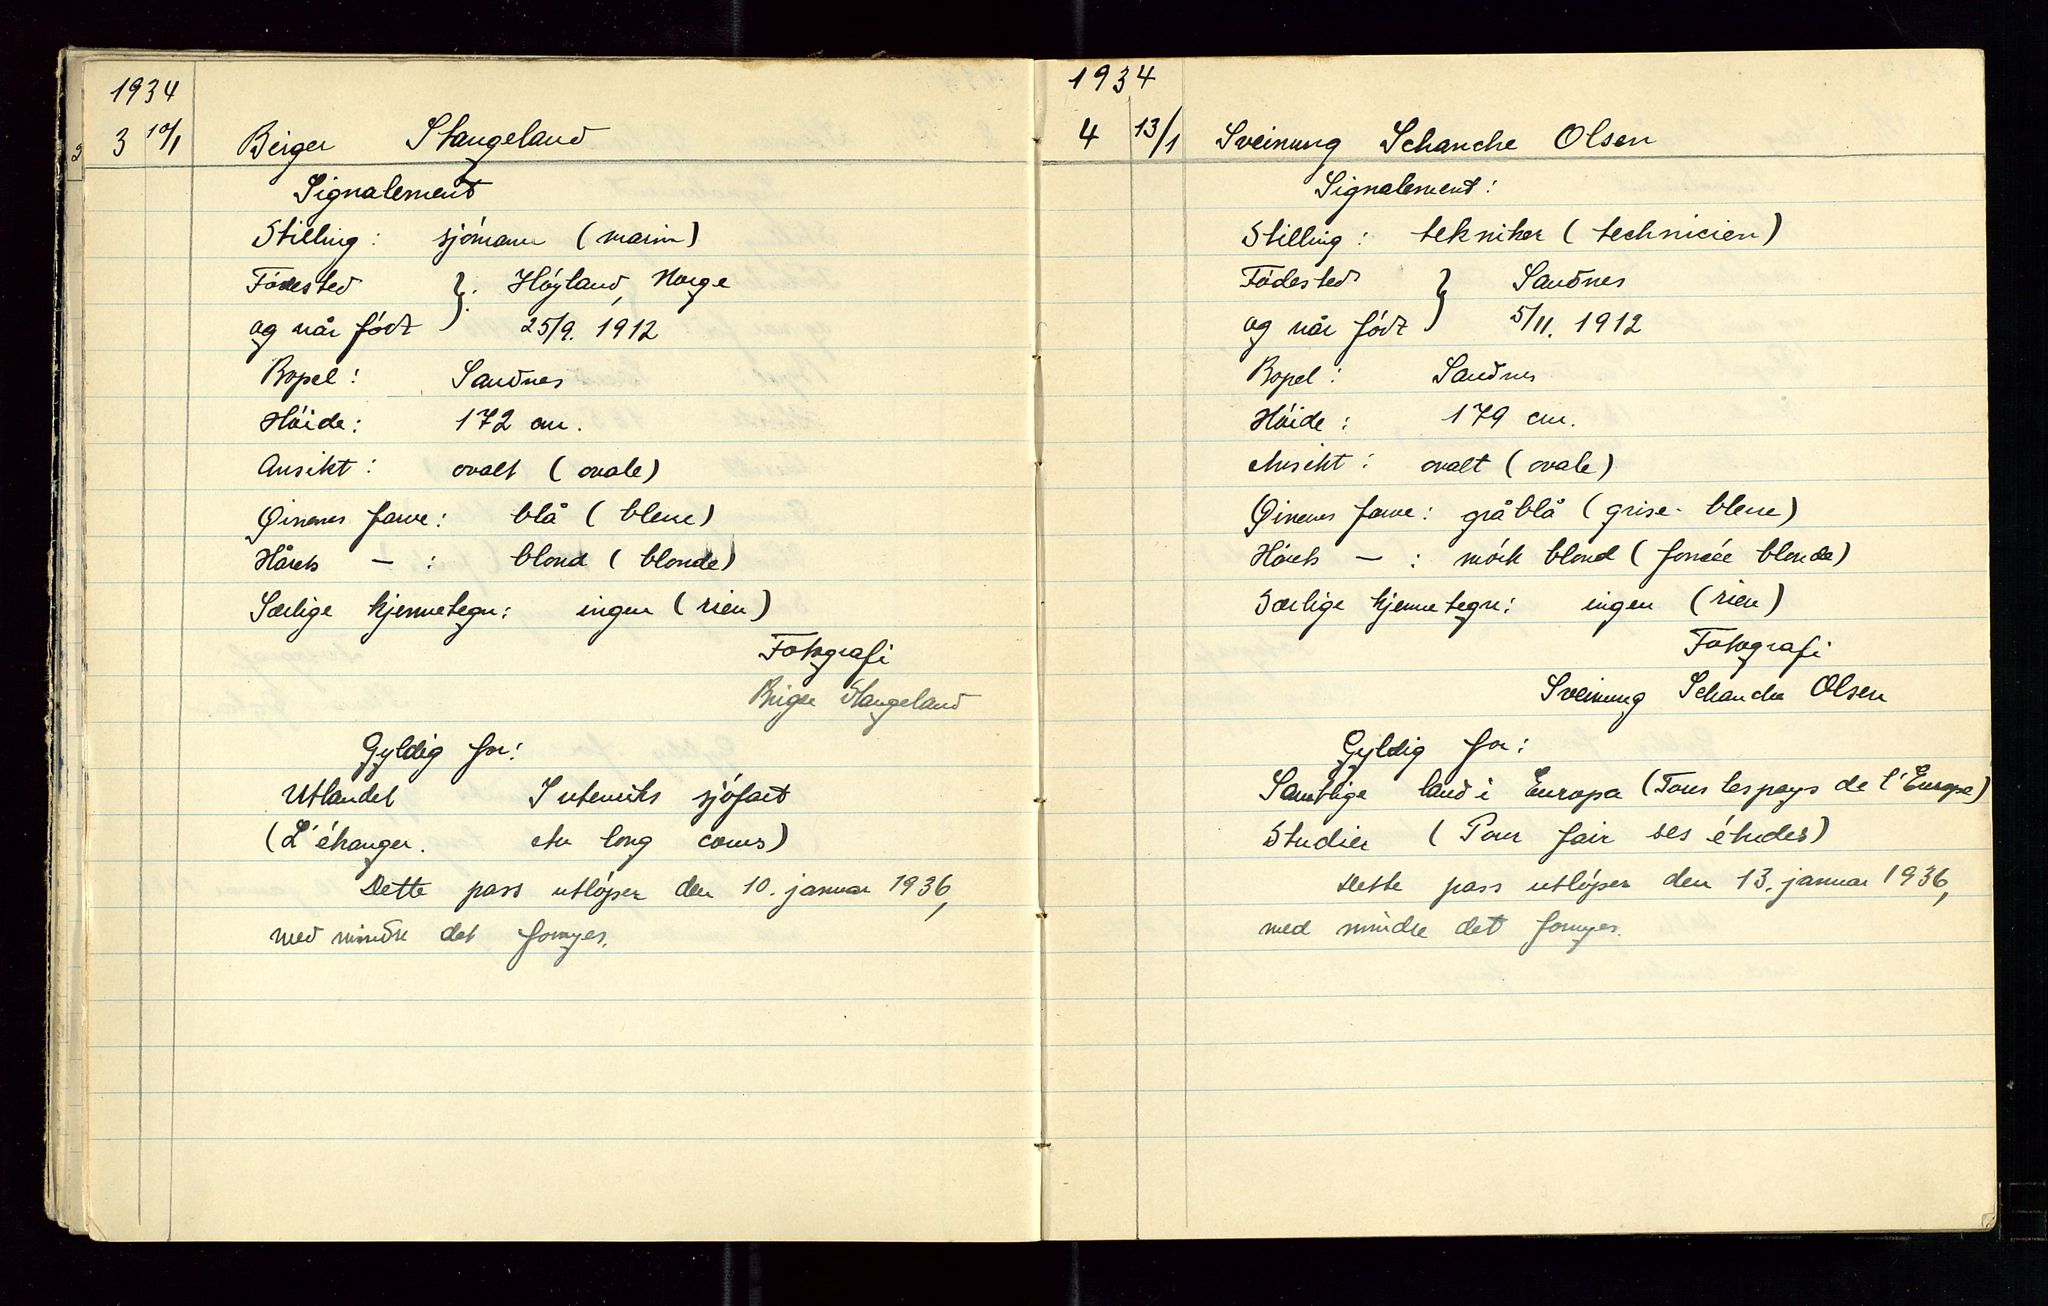 1934
3 10/1 Birger Stangeland
Signalement
Stilling: sjómann (marin)
Fódested
og når fódt }: Hóyland, Norge
25/9. 1912
Bopel: Sandnes
Hóide: 172 cm.
Ansikt: ovalt (ovale)
Øinenes farve: blå (bleue)
Hårets — : blond (blonde)
Særlige kjennetegn: ingen (rien)
Fotografi
Birger Stangeland
Gyldig for:
Utlandet Utenriks sjófart
(L'étranger. au long cours)
Dette pass utlóper den 10. januar 1936,
med mindre det fornyes.
1934
4 13/1 Sveinung Schanche Olsen
Signalement:
Stilling: tekniker (technicien)
Fódested
og når fódt } Sandnes
5/11. 1912
Bopel: Sandnes
Hóide: 179 cm.
Ansikt: ovalt (ovale)
Øinenes farve: gråblå (grise-bleue)
Hårets — : mórk blond (foncée blonde)
Særlige kjennetegn: ingen (rien)
Fotografi
Sveinung Schanche Olsen
Gyldig for:
Samtlige land i Europa (Tous les pays de l'Europe)
Studier (Pour fair ses études)
Dette pass utlóper den 13. januar 1936,
med mindre det fornyes.